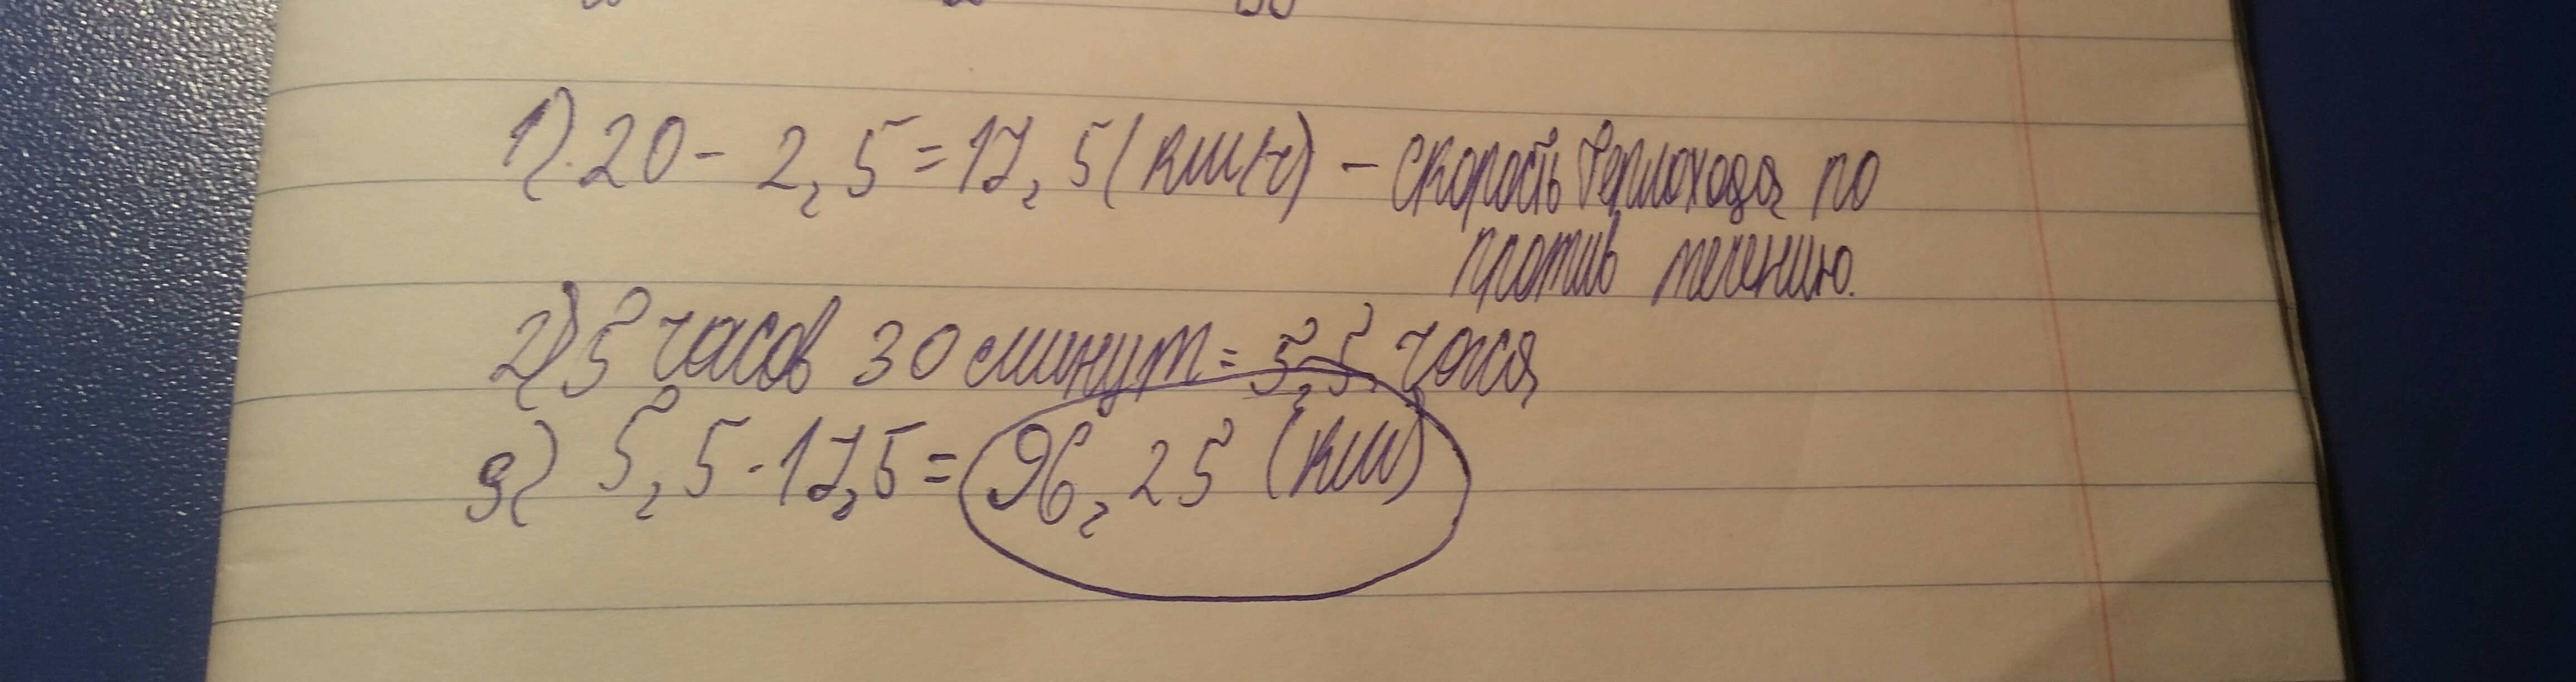 1). 20 - 2,5 = 17,5 (км/ч) - скорость теплохода по
против течению.
2) 5 часов 30 минут = 5,5 часа
3) 5,5 · 17,5 = 96,25 (км)